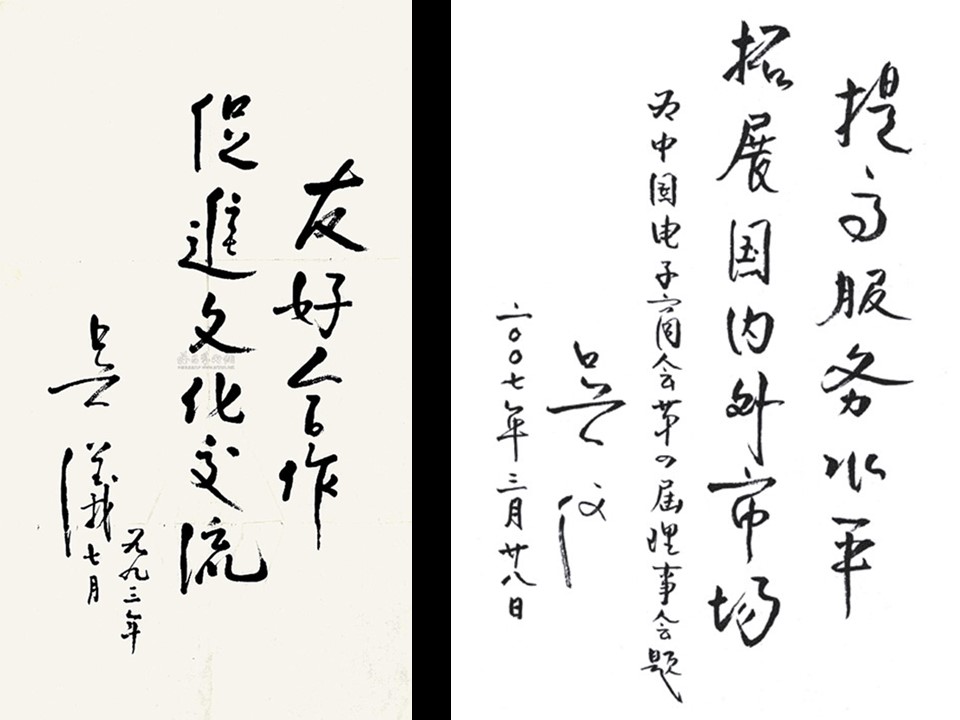 友好合作
促進文化交流
吴儀
一九九三年
七月
提高服务水平
拓展国内外市场
为中国电子商会第四届理事会题
吴仪
二〇〇七年三月廿八日